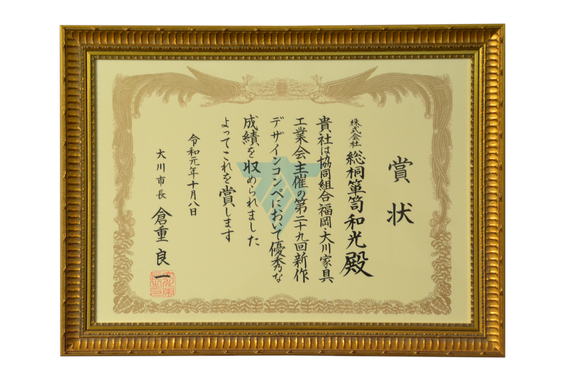 賞状
株式会社 総桐箪笥和光殿
貴社は協同組合福岡・大川家具
工業会主催の第二十九回新作
デザインコンペにおいて優秀な
成績を収められました
よってこれを賞します
令和元年十月八日
大川市長 倉重良一